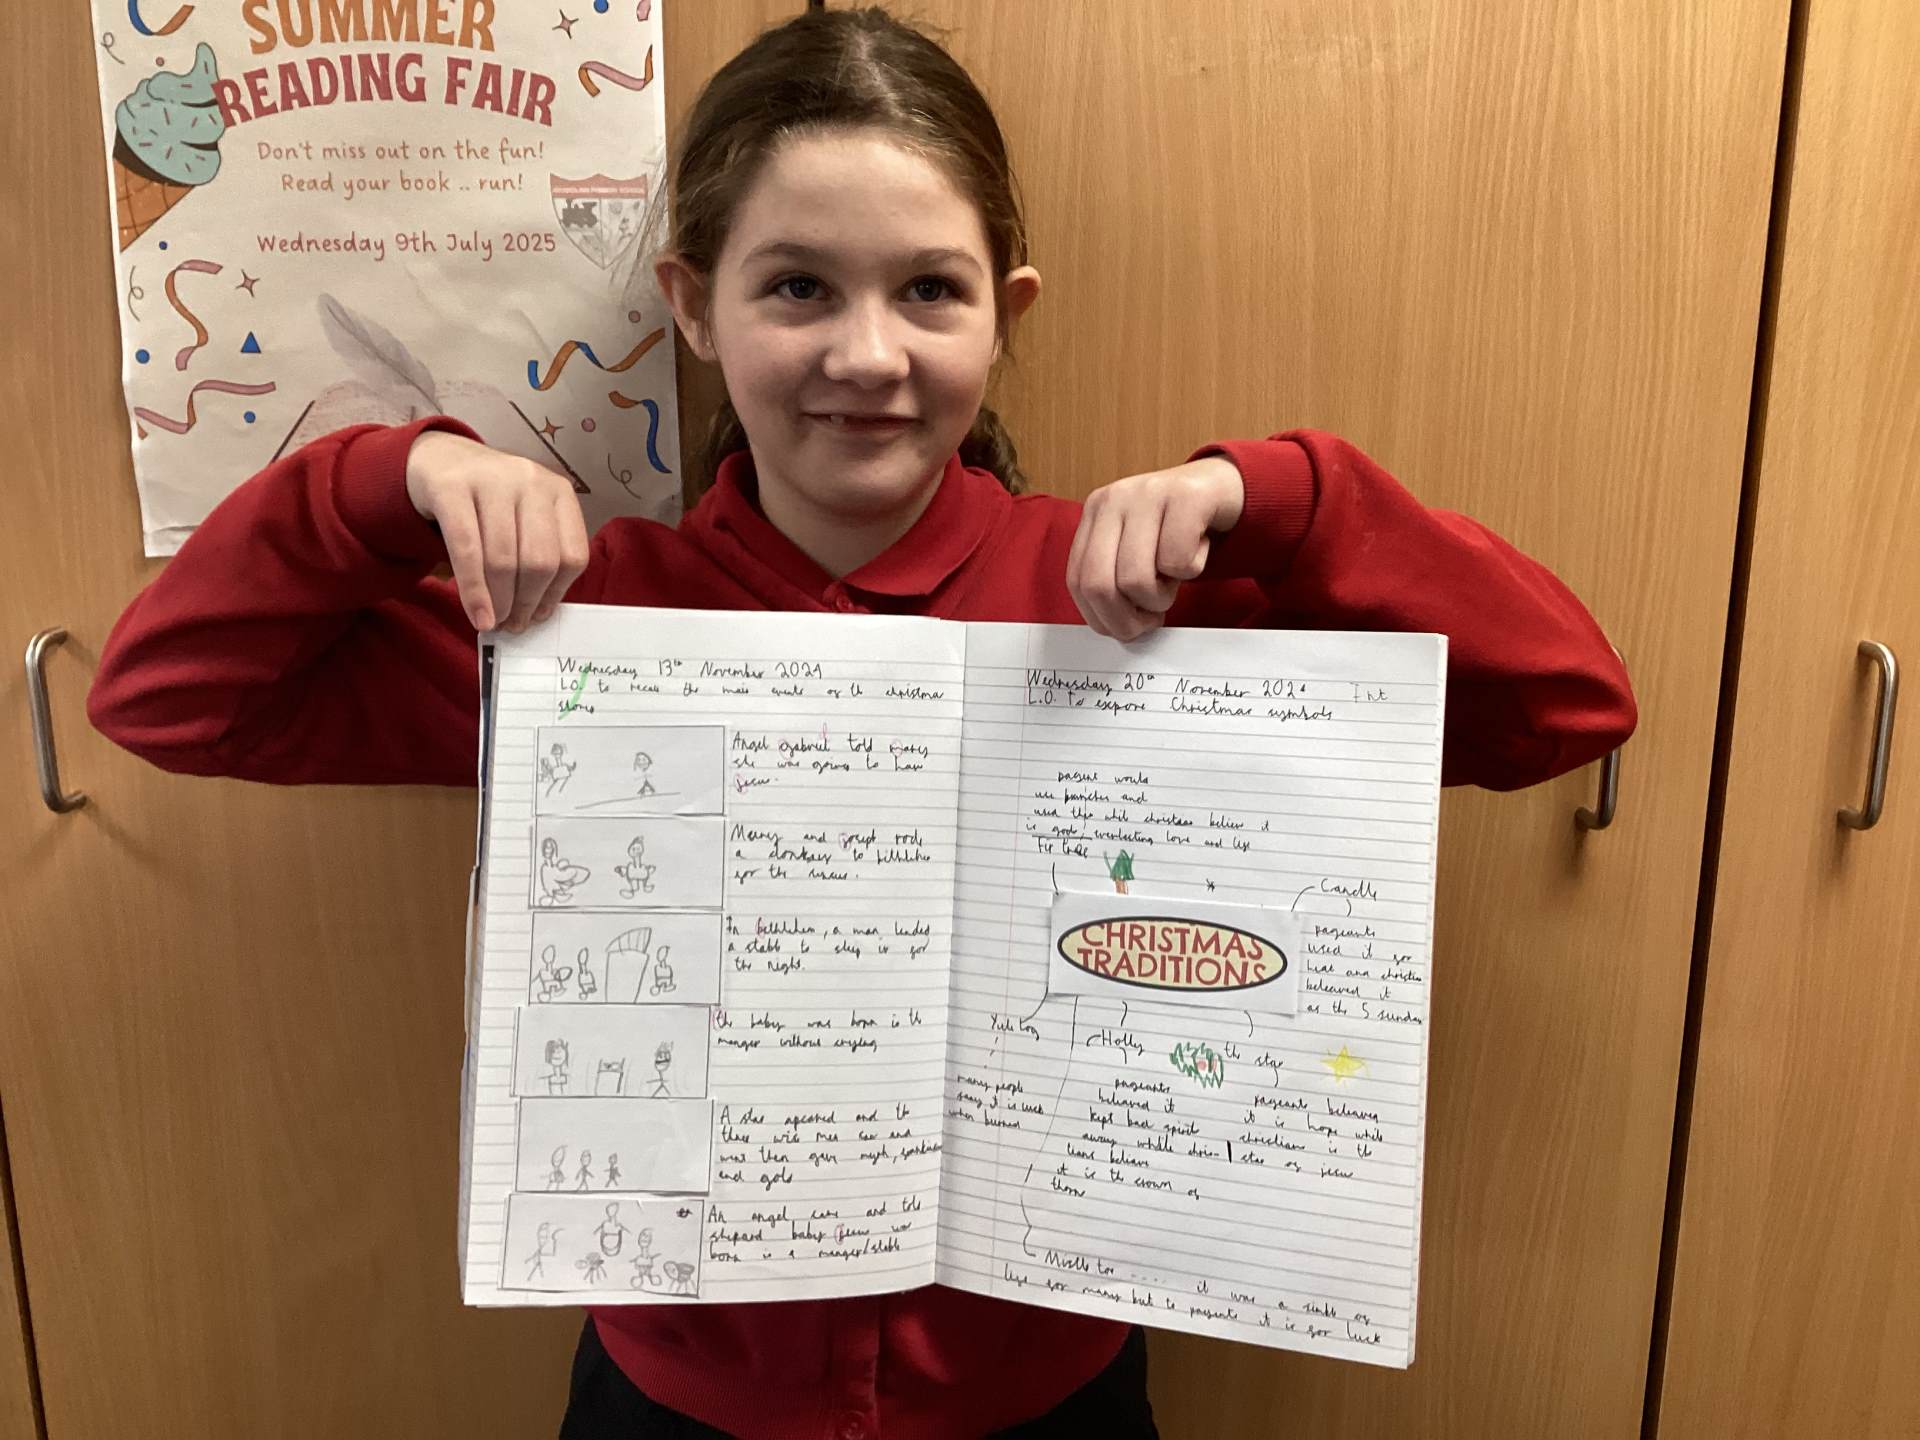 SUMMER
READING FAIR
Don't miss out on the fun!
Read your book .. run!
Wednesday 9th July 2025
PRIMARY SCHOOL
Wednesday 13th November 2024
L.O. to recall the main events of the christmas
story
Angel gabriel told mary
she was going to have
jesus.
Marey and josept rode
a donkey to
for the
In bethlehem, a man
a stable to sleep in for
the night.
the baby was born in the
manger without crying
A star apeared and the
three wise men saw and
went then gave
and gold
An angel came and told
shepard baby jesus was
born in a manger/stable
Wednesday 20th November 202
L.O. To expore Christmas symbols
would
use branches and
while christians believe it
is gods everlasting love and life
Fir tree
Candle
pageants
used it for
heat and christian
beleaved it
as the 5 sunday
CHRISTMAS
TRADITIONS
Yule Log
many people
say it is luck
when burned
Holly
pageants
beleaved it
kept bad spirit
away while chris-
tians believe
it is the crown of
thorn
the star
pageants beleaved
it is hope while
christians is the
star of jesus
Misltoe .... it was a of
life for many but to it is for luck